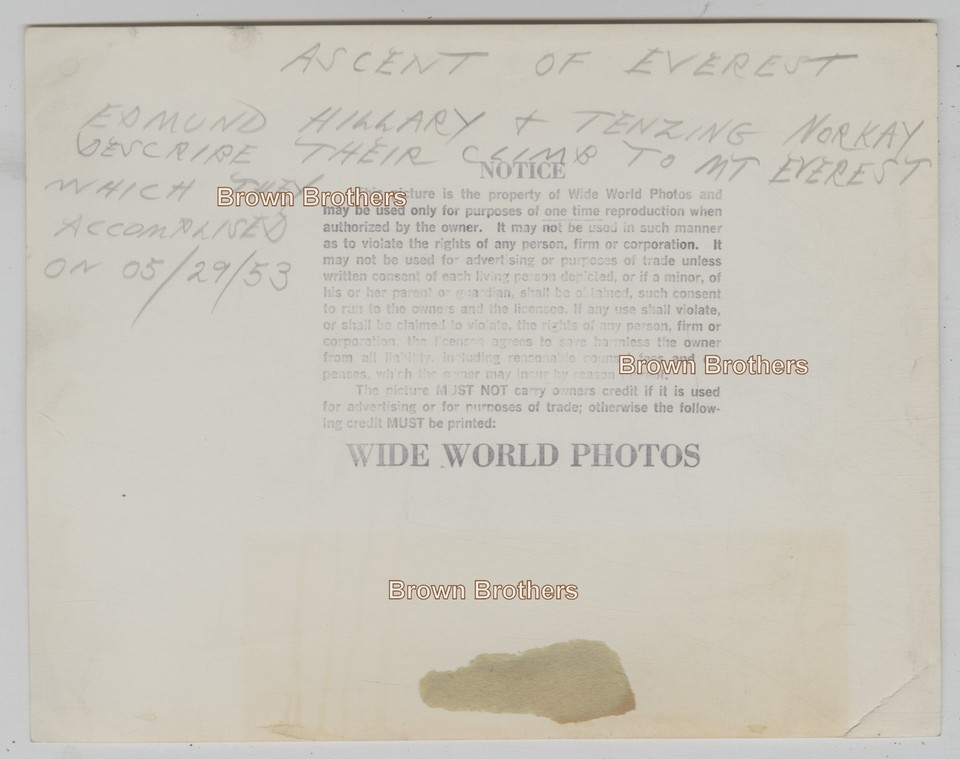 ASCENT OF EVEREST
EDMUND HILLARY + TENZING NORKAY
DESCRIBE THEIR CLIMB TO MT EVEREST
WHICH THEY
ACCOMPLISED
ON 05/29/53
NOTICE
This picture is the property of Wide World Photos and
may be used only for purposes of one time reproduction when
authorized by the owner. It may not be used in such manner
as to violate the rights of any person, firm or corporation. It
may not be used for advertising or purposes of trade unless
written consent of each living person depicted, or if a minor, of
his or her parent or guardian, shall be obtained, such consent
to run to the owners and the licensee. If any use shall violate,
or shall be claimed to violate, the rights of any person, firm or
corporation, the licensee agrees to save harmless the owner
from all liability, including reasonable counsel fees and
penses, which the owner may incur by reason
The picture MUST NOT carry owners credit if it is used
for advertising or for purposes of trade; otherwise the follow-
ing credit MUST be printed:
WIDE WORLD PHOTOS
Brown Brothers
Brown Brothers
Brown Brothers